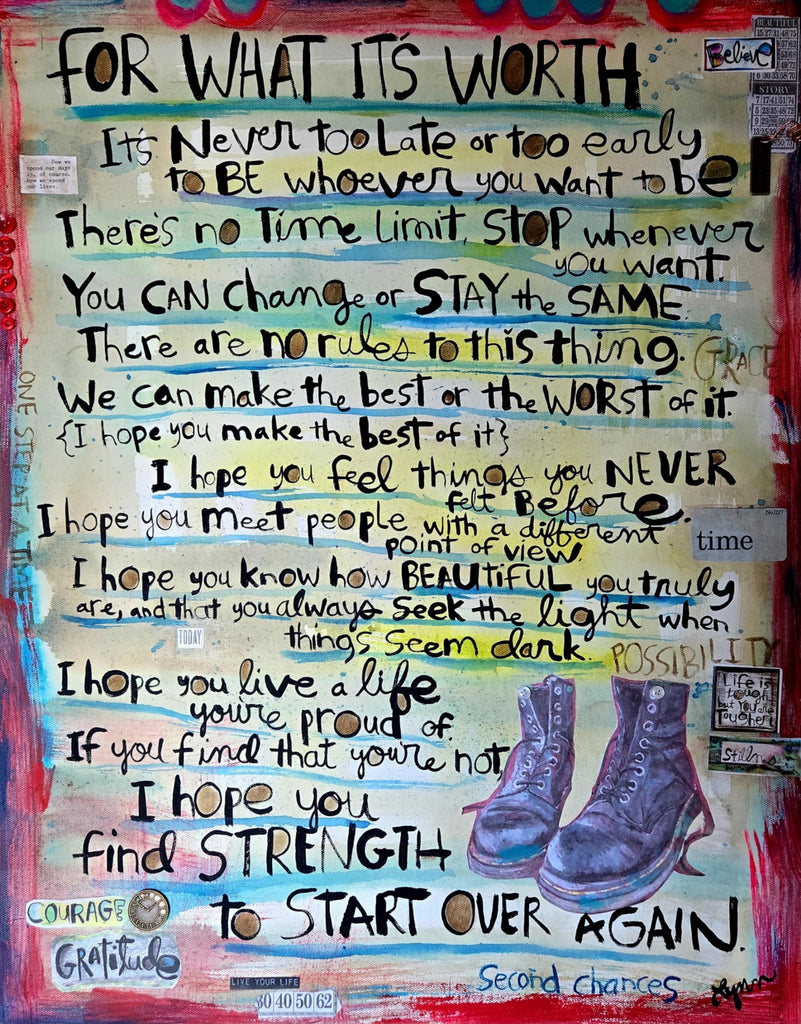 FOR WHAT IT'S WORTH
BEAUTIFUL
Believe
STORY
It's Never too Late or too early
to BE whoever you want to be
How we
spend our days
is, of course,
how we spend
our lives.
There's no Time Limit, STOP whenever
you want.
You CAN change or STAY the SAME.
There are no rules to this thing.
GRACE
We can make the best or the WORST of it.
{I hope you make the best of it}
ONE STEP AT A TIME
I hope you feel things you NEVER
felt Before.
I hope you meet people with a different
point of view.
No.027
time
I hope you know how BEAUTIFUL you truly
are, and that you always seek the light when
things seem dark.
TODAY
POSSIBILITY
I hope you live a life
you're proud of.
If you find that you're not,
I hope you
find STRENGTH
to START OVER AGAIN.
Life is
tough
but you are
Tougher!
COURAGE
Gratitude
LIVE YOUR LIFE
30 40 50 62
Second chances